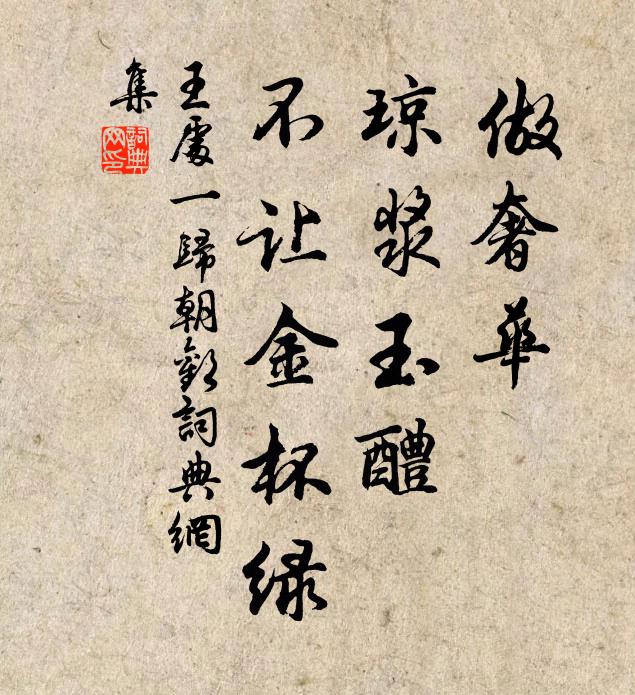 做奢華
琼浆玉醴
不让金杯緑
王處一歸朝歡詞典網
集
詞典
网印